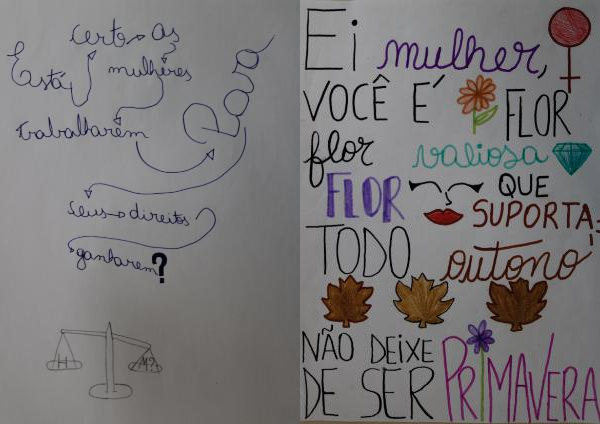 Está certo As mulheres
trabalharem Para
seus direitos
ganharem?
H M?
Ei mulher,
VOCÊ É FLOR
flor valiosa
FLOR QUE
SUPORTA
TODO outono
NÃO DEIXE
DE SER PRIMAVERA